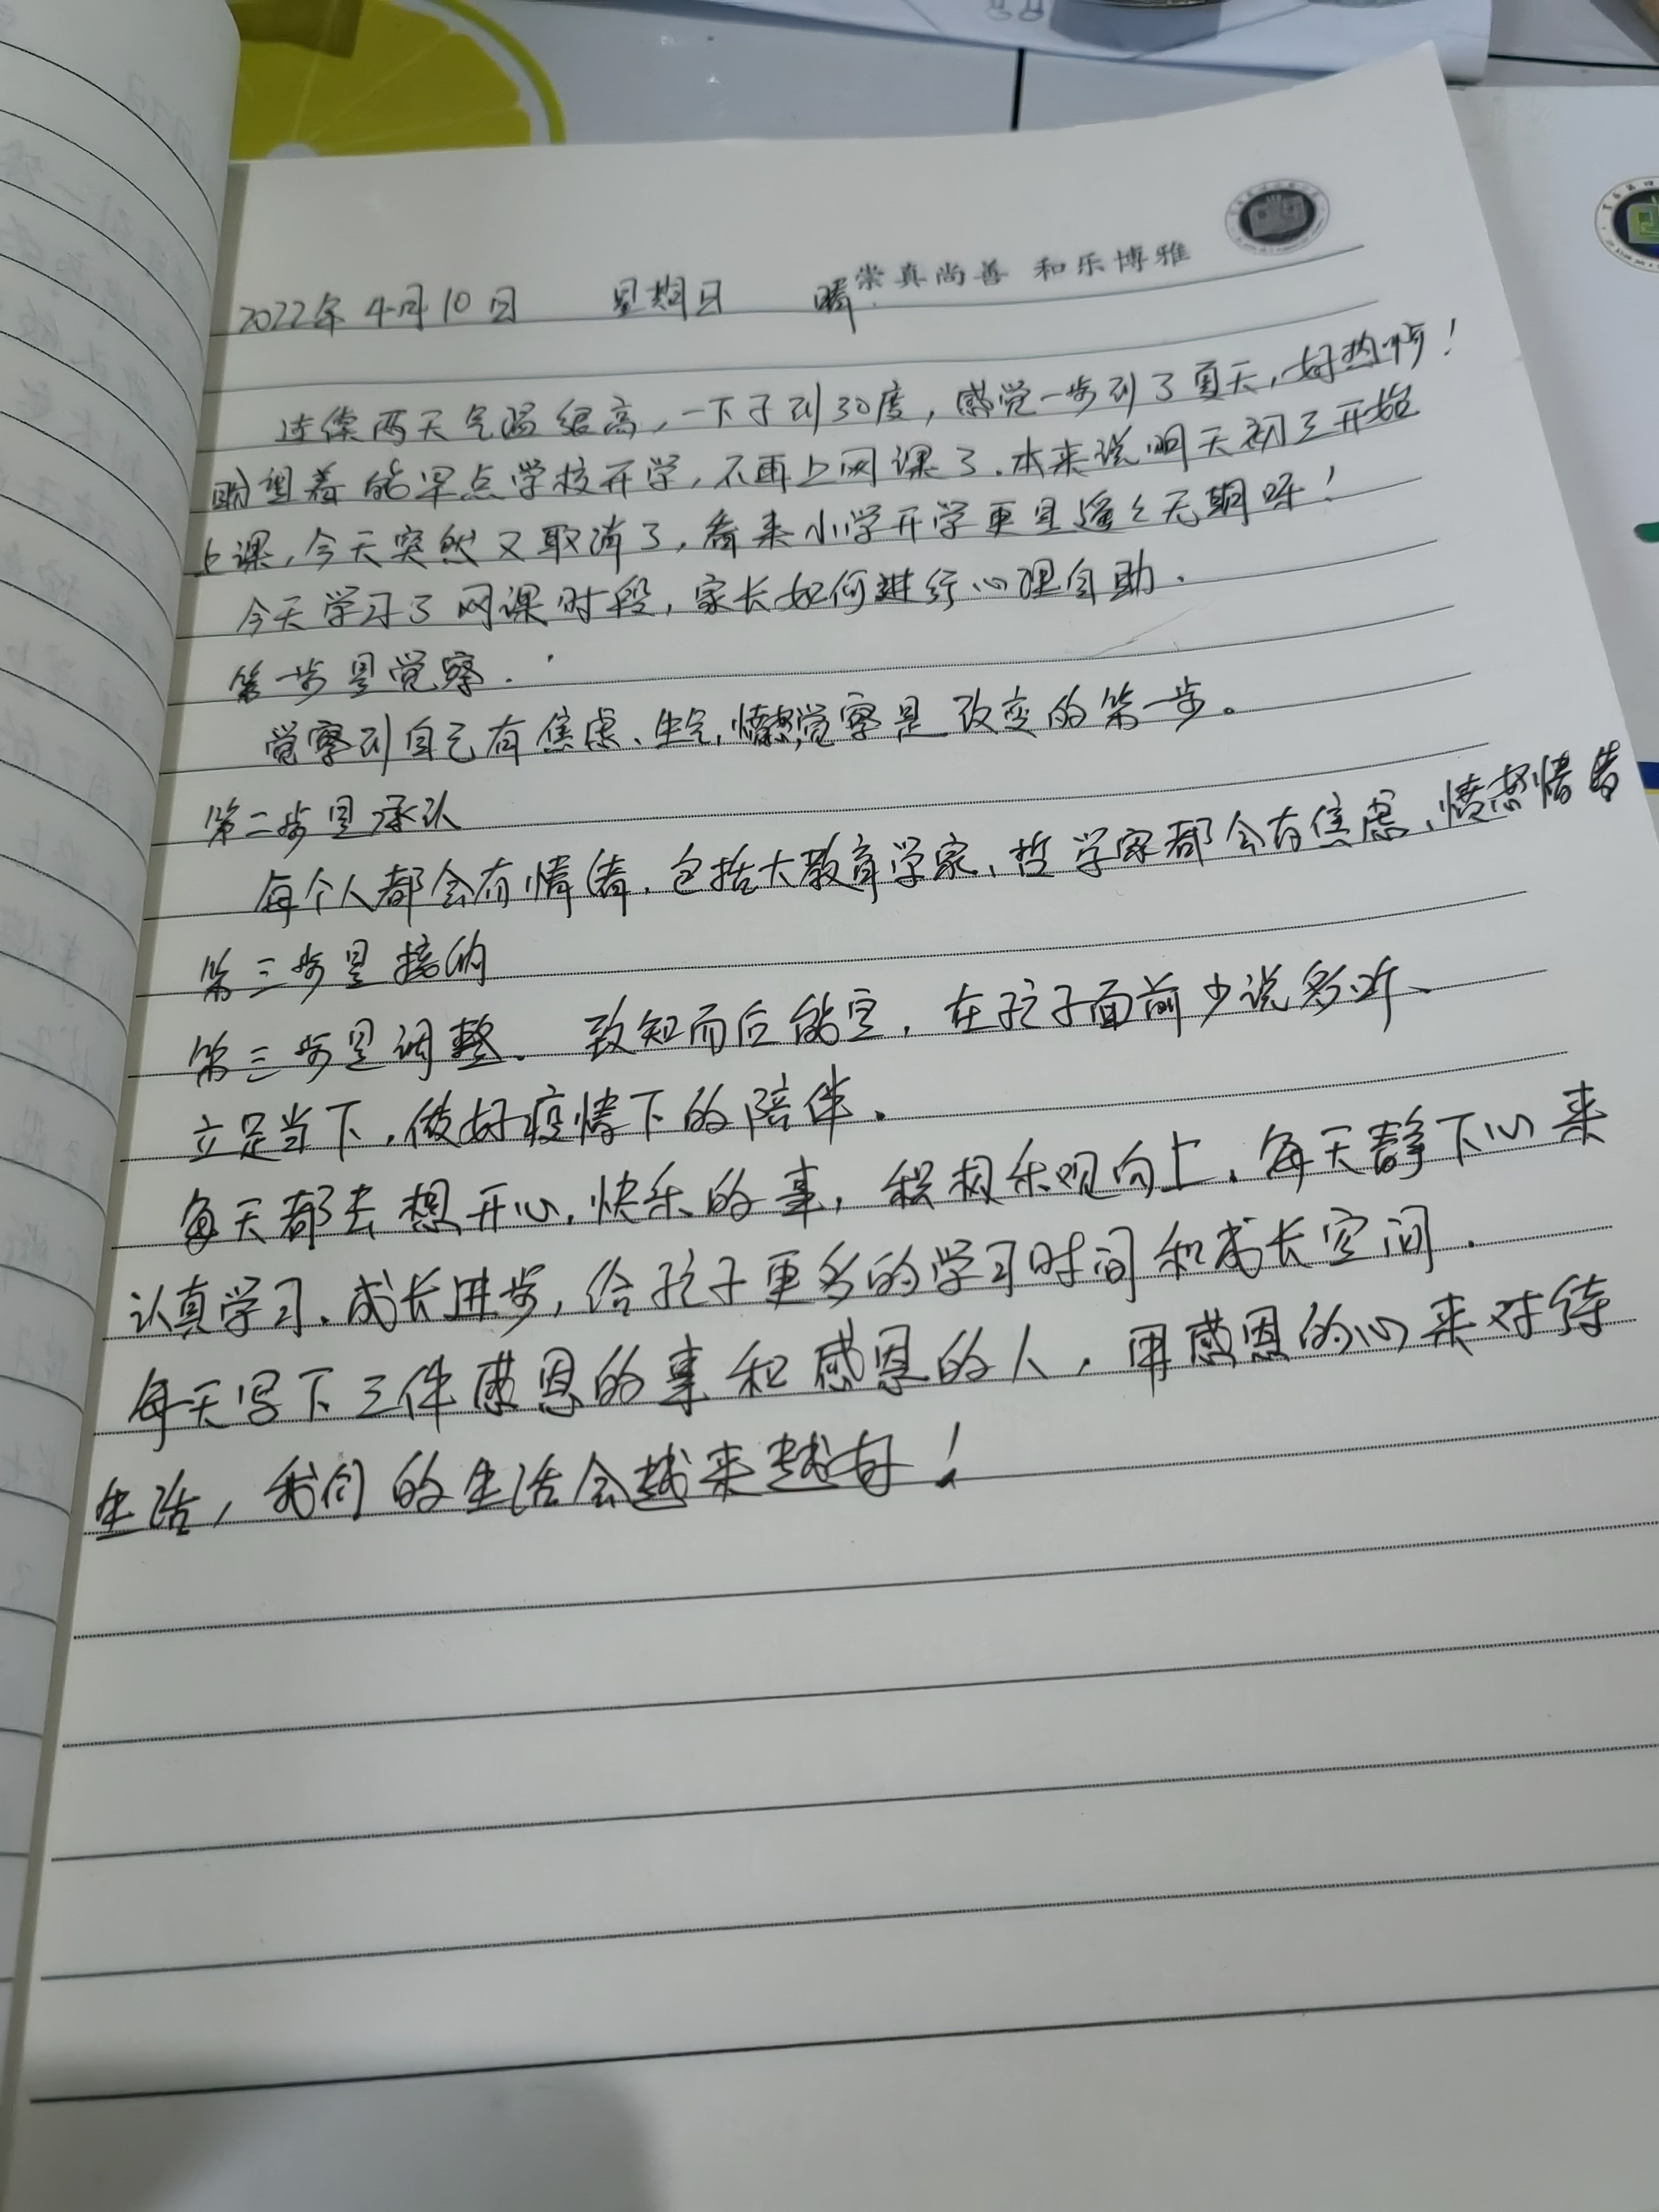 崇真尚善 和乐博雅
2022年4月10日 星期日 晴
连续两天气温很高，一下子到30度，感觉一步到了夏天，好热啊！
盼望着能早点学校开学，不再上网课了．本来说明天初三开始
上课，今天突然又取消了，看来小学开学更是遥々无期呀！
今天学习了网课时段，家长如何进行心理自助．
第一步是觉察．
觉察到自己有焦虑、生气，愤怒，觉察是改变的第一步。
第二步是承认
每个人都会有情绪，包括大教育学家、哲学家都会有焦虑、愤怒情绪
第三步是接纳
第三步是调整、 致知而后能定，在孩子面前少说多听、
立足当下，做好疫情下的陪伴．
每天都去想开心，快乐的事，积极乐观向上，每天静下心来
认真学习、成长进步，给孩子更多的学习时间和成长空间．
每天写下三件感恩的事和感恩的人，用感恩的心来对待
生活，我们的生活会越来越好！